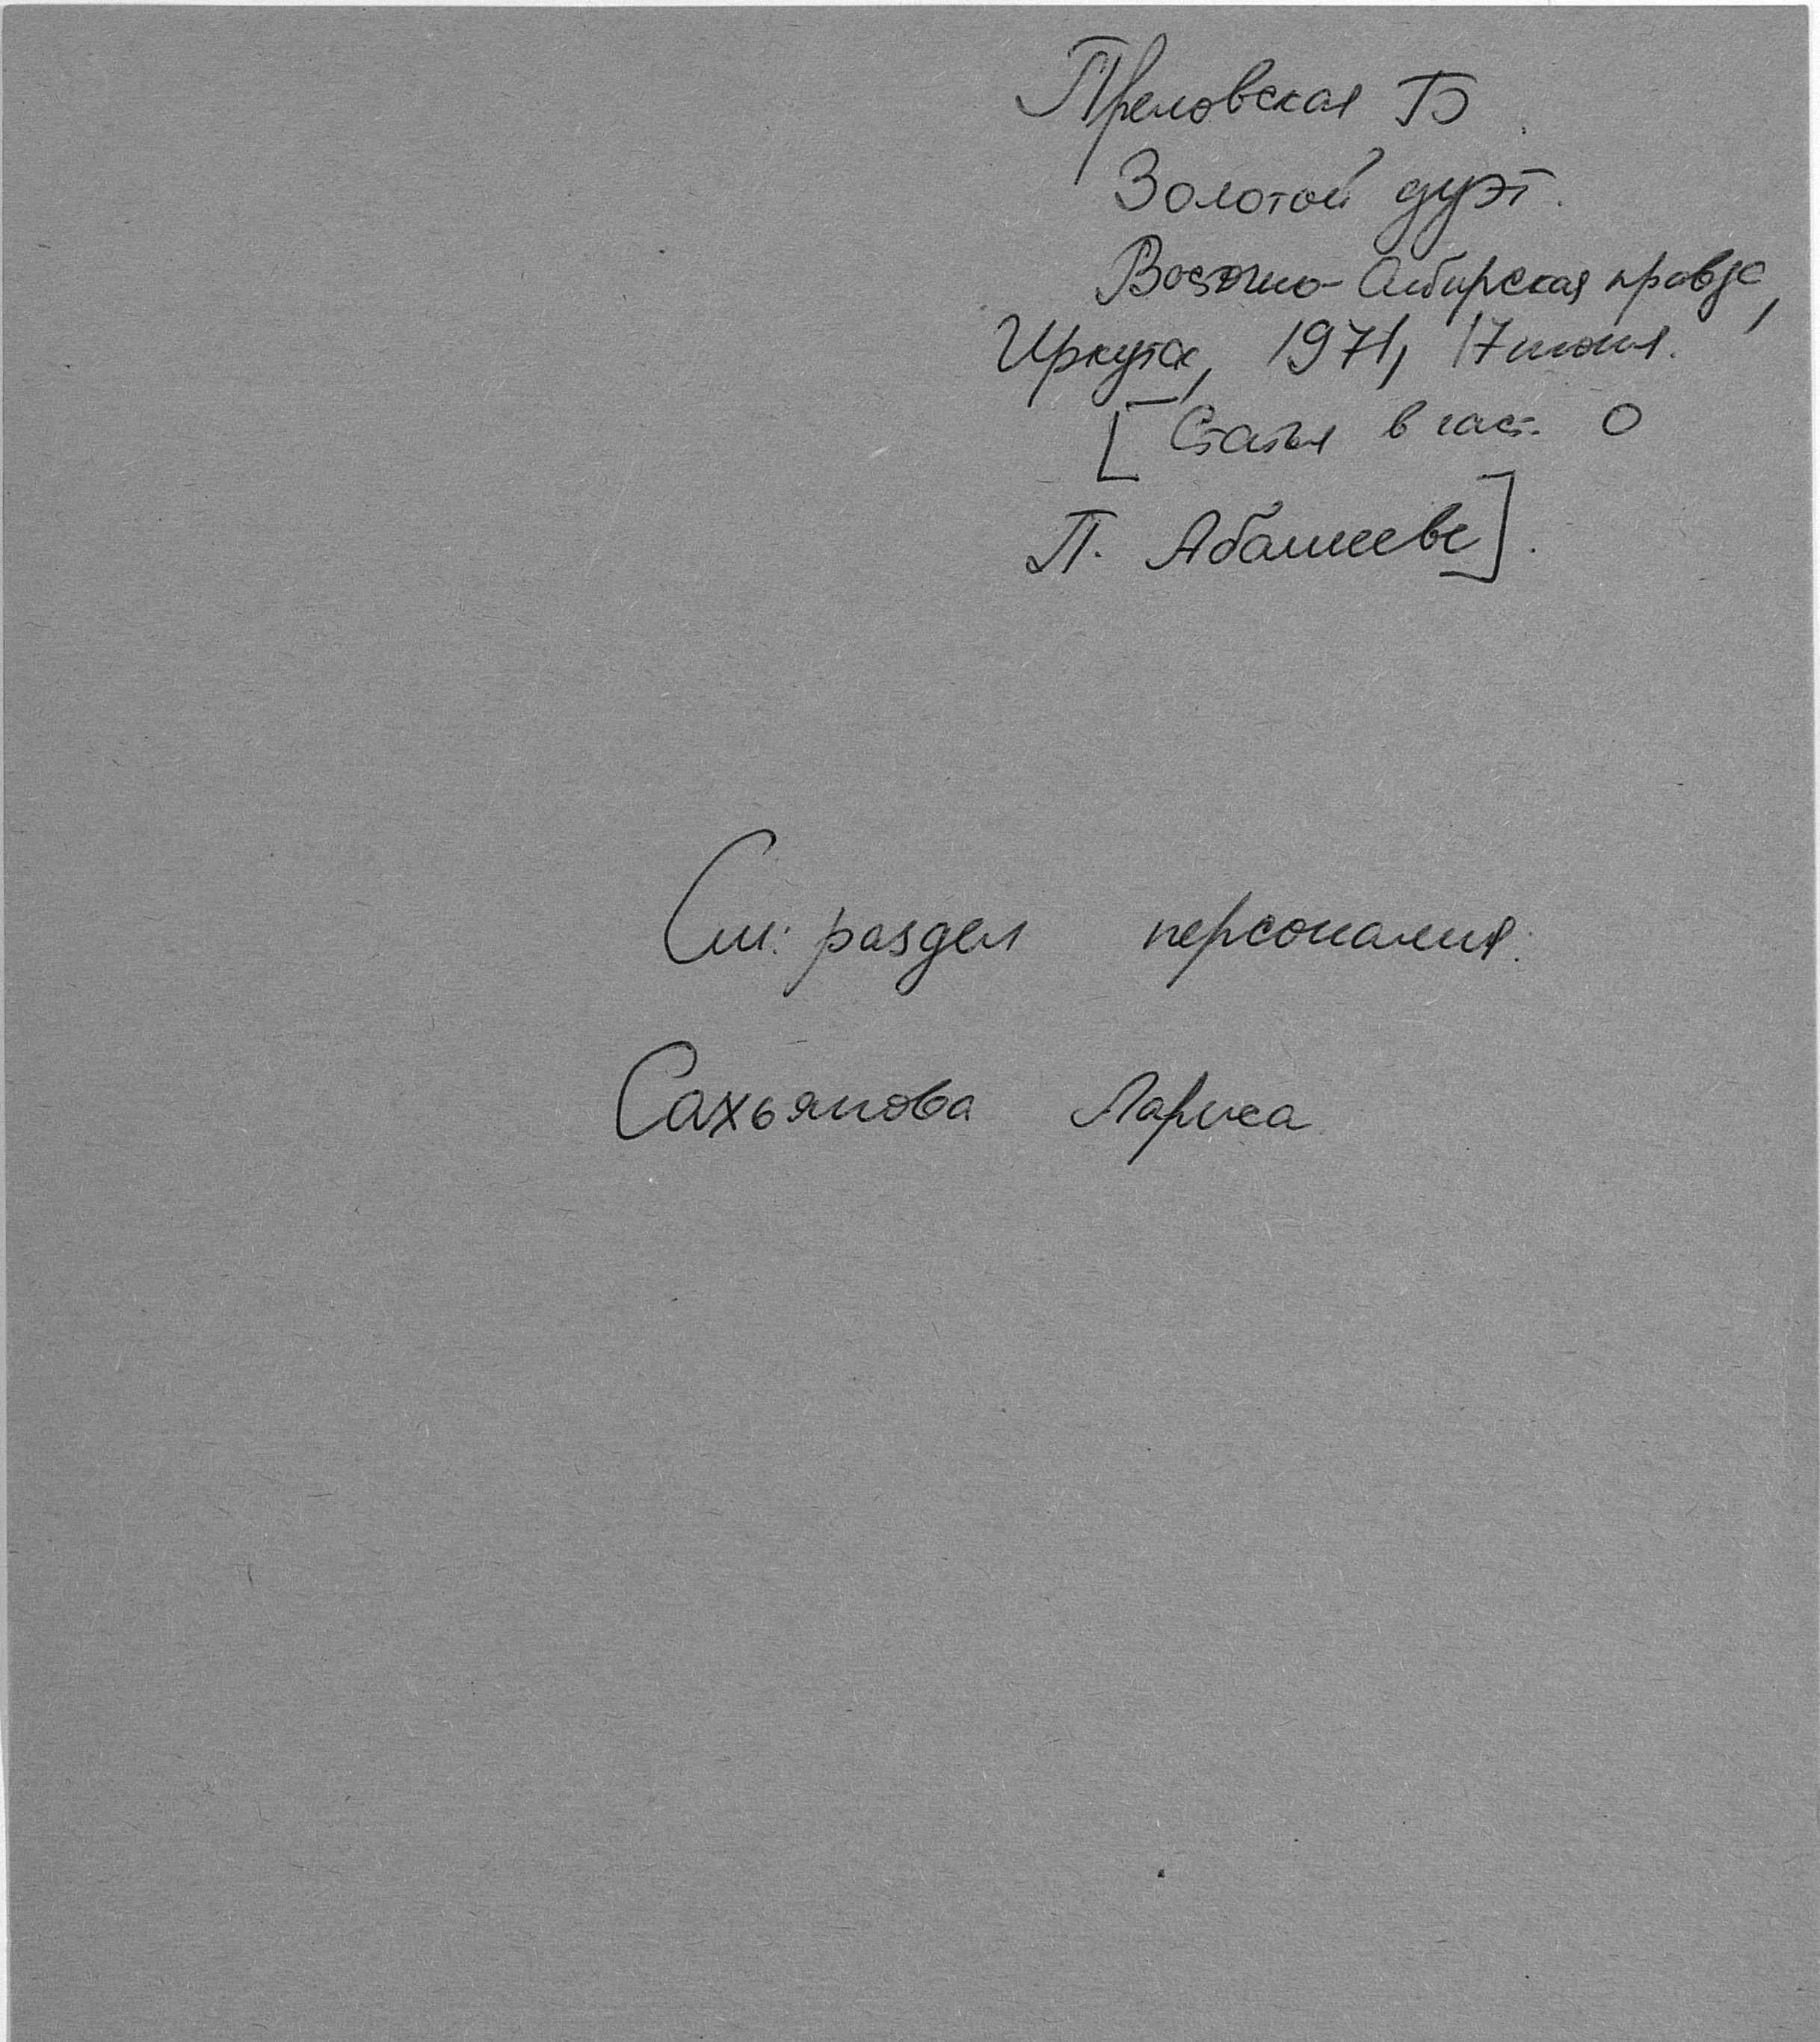 Преловская Б.
Золотой дуэт.
Восточно-Сибирская правда,
Иркутск, 1971, 17 июня.
[Статья в част. о
П. Абашееве].
См: раздел персоналия:
Сахьянова Лариса